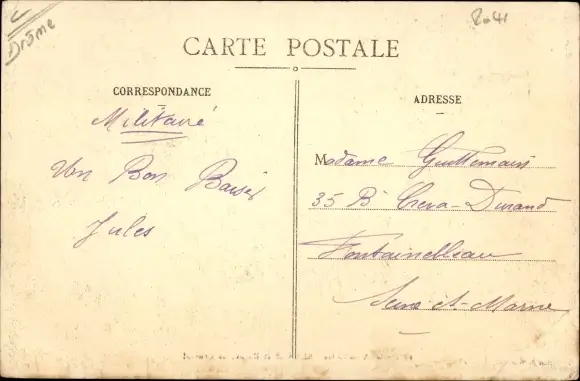 Drôme
CARTE POSTALE
CORRESPONDANCE
Militaire
Un Bon Baiser
Jules
ADRESSE
Madame
35 B Durand
Fontainebleau
Seine-et-Marne